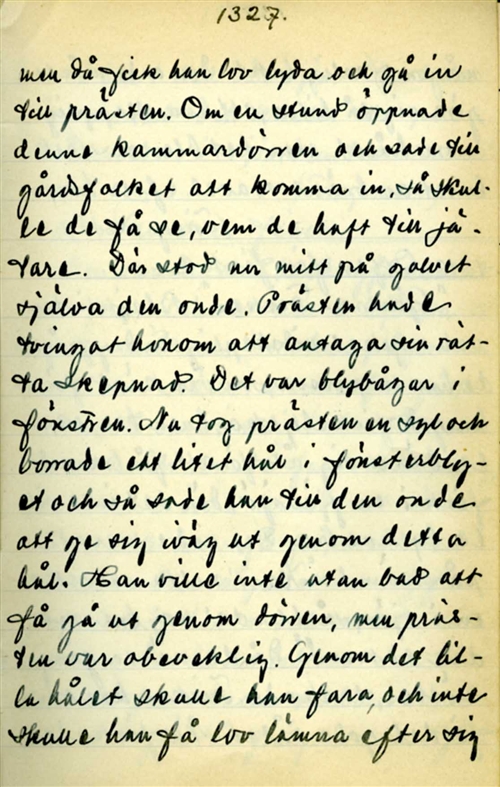 1327.
men då fick han lov lyda och gå in
till prästen. Om en stund öppnade
denne kammardörren och sade till
gårdsfolket att komma in, så skul-
le de få se, vem de haft till jä-
tare. Där stod nu mitt på golvet
själva den onde. Prästen hade
tvingat honom att antaga sin rät-
ta skepnad. Det var blybågar i
fönstren. Nu tog prästen en syl och
borrade ett litet hål i fönsterbly-
et och så sade han till den onde
att ge sig iväg ut genom detta
hål. Han ville inte utan bad att
få gå ut genom dörren, men präs-
ten var obeveklig. Genom det lil-
la hålet skulle han fara, och inte
skulle han få lov lämna efter sig